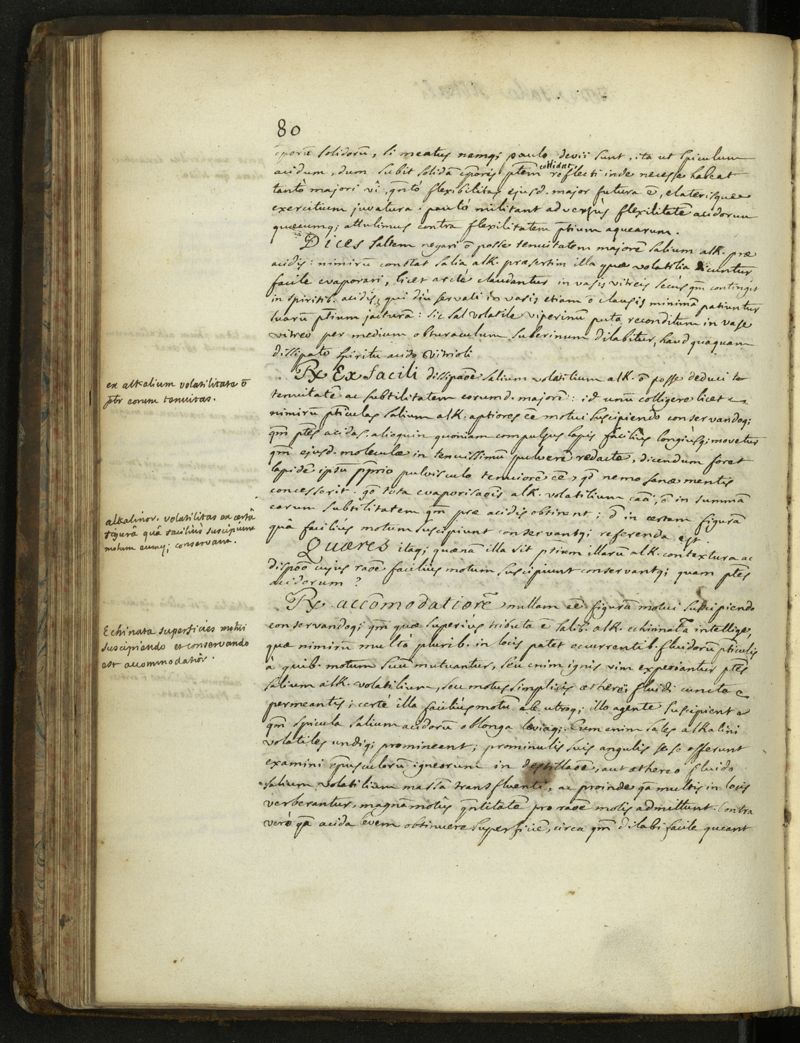 80
cporū solidorū, si meatus namq; paulo devii sunt, ita ut spiculum
acidum, dum subit solidā cporis ptem collidat reflecti inde necesse habeat
tantò majori vi, qntò flexibilitas ejusd. major futura ē, elaterisque
exercitium juvatura: paulò militant adversùs flexilitatē acidorum
quæcumq; attulimus contra flexilitatem ptium aquearum.
Dices saltem negari ō posse tenuitatem majorē salium alk. præ
acidis: nimirū constat salia alk. præsertim illa quæ volatilia dicuntur
facile evaporari, licet arctè claudantur in vasis vitreis secùs qm contingit
in spiritib. acidis, qui diu servati in vasis etiam ō clausis minimā patiuntur
suarū ptium jactura: sic sal volatile viperinū puta reconditum in vase
vitreo per medium obturaculum suberinum dilabitur, haud quaquam
dissipato spiritu acido vitrioli
Rx Ex facili dissipaōe salium volatilium alk. ō posse deduci
tenuitatē ac subtilitatem eorumd. majorē: id unū colligere licet
nimirū pticulas salium alk. aptiores ēe motui suscipiendo conservandoq;
qm ptes acidas. alioquin quoniam compulsus lapis faciliùs longiùsq; movetur
qm ejusd. moleculæ in tenuissimū pulverē redactæ, dicendum foret
lapidē ipsū pprio pulvisculo tenuiorē ēe, qd nemo sanæ mentis
concesserit. gō tota evaporaōis alk. volatilium caā, ō in summā
earum subtilitatem qm præ acidis obtinent; sd in certam figurā
quâ faciliùs motum suscipiunt conservantq; referenda est.
Quæres itaq; quænā illa sit ptium illarū alk. contextura ac
dispōō cujus raōe faciliùs motum suscipiunt conservantq; quam ptes
acidorum?
Rx. accōmodatiorē nullam ēe figurā motui suscipiendo
conservandoq; qm quæ superiùs tributa ē salib. alk. echinata intellige,
quæ nimirū multò plurib. in locis patet occurrentib. fluidorū pticulis
a quib. motum suū mutuantur, seu enim ignis vim experiantur ptes
salium alk. volatilium, seu motus simplicis ætherei fluidi cuncta
permeantis; certè illa faciliùs motū ab utroq; illo agente suscipient
qm spicula salium acidorū oblonga levigaq; Cum enim sales alkalini
volatiles undiq; promineant; prominulis suis angulis se se offerunt
examini cpusculorū igneorum in destillaōe, aut æthereo fluido
salium volatilium massā transfluenti, ac proinde qa multis in locis
verberantur, magnā motûs qntitatē pro raōe molis admittunt. Contra
verò qa acida evem obtinuere superficiē, circa qm dilabi facile queant
ex alkalium volatilitate ō
pbr eorum tenuitas.
alkalinor. volatilitas ex certâ
figurâ quâ faciliùs suscipiunt
motum eumq; conservant.
Echinata superficies motui
suscipiendo et conservando
est accommodatiōr.